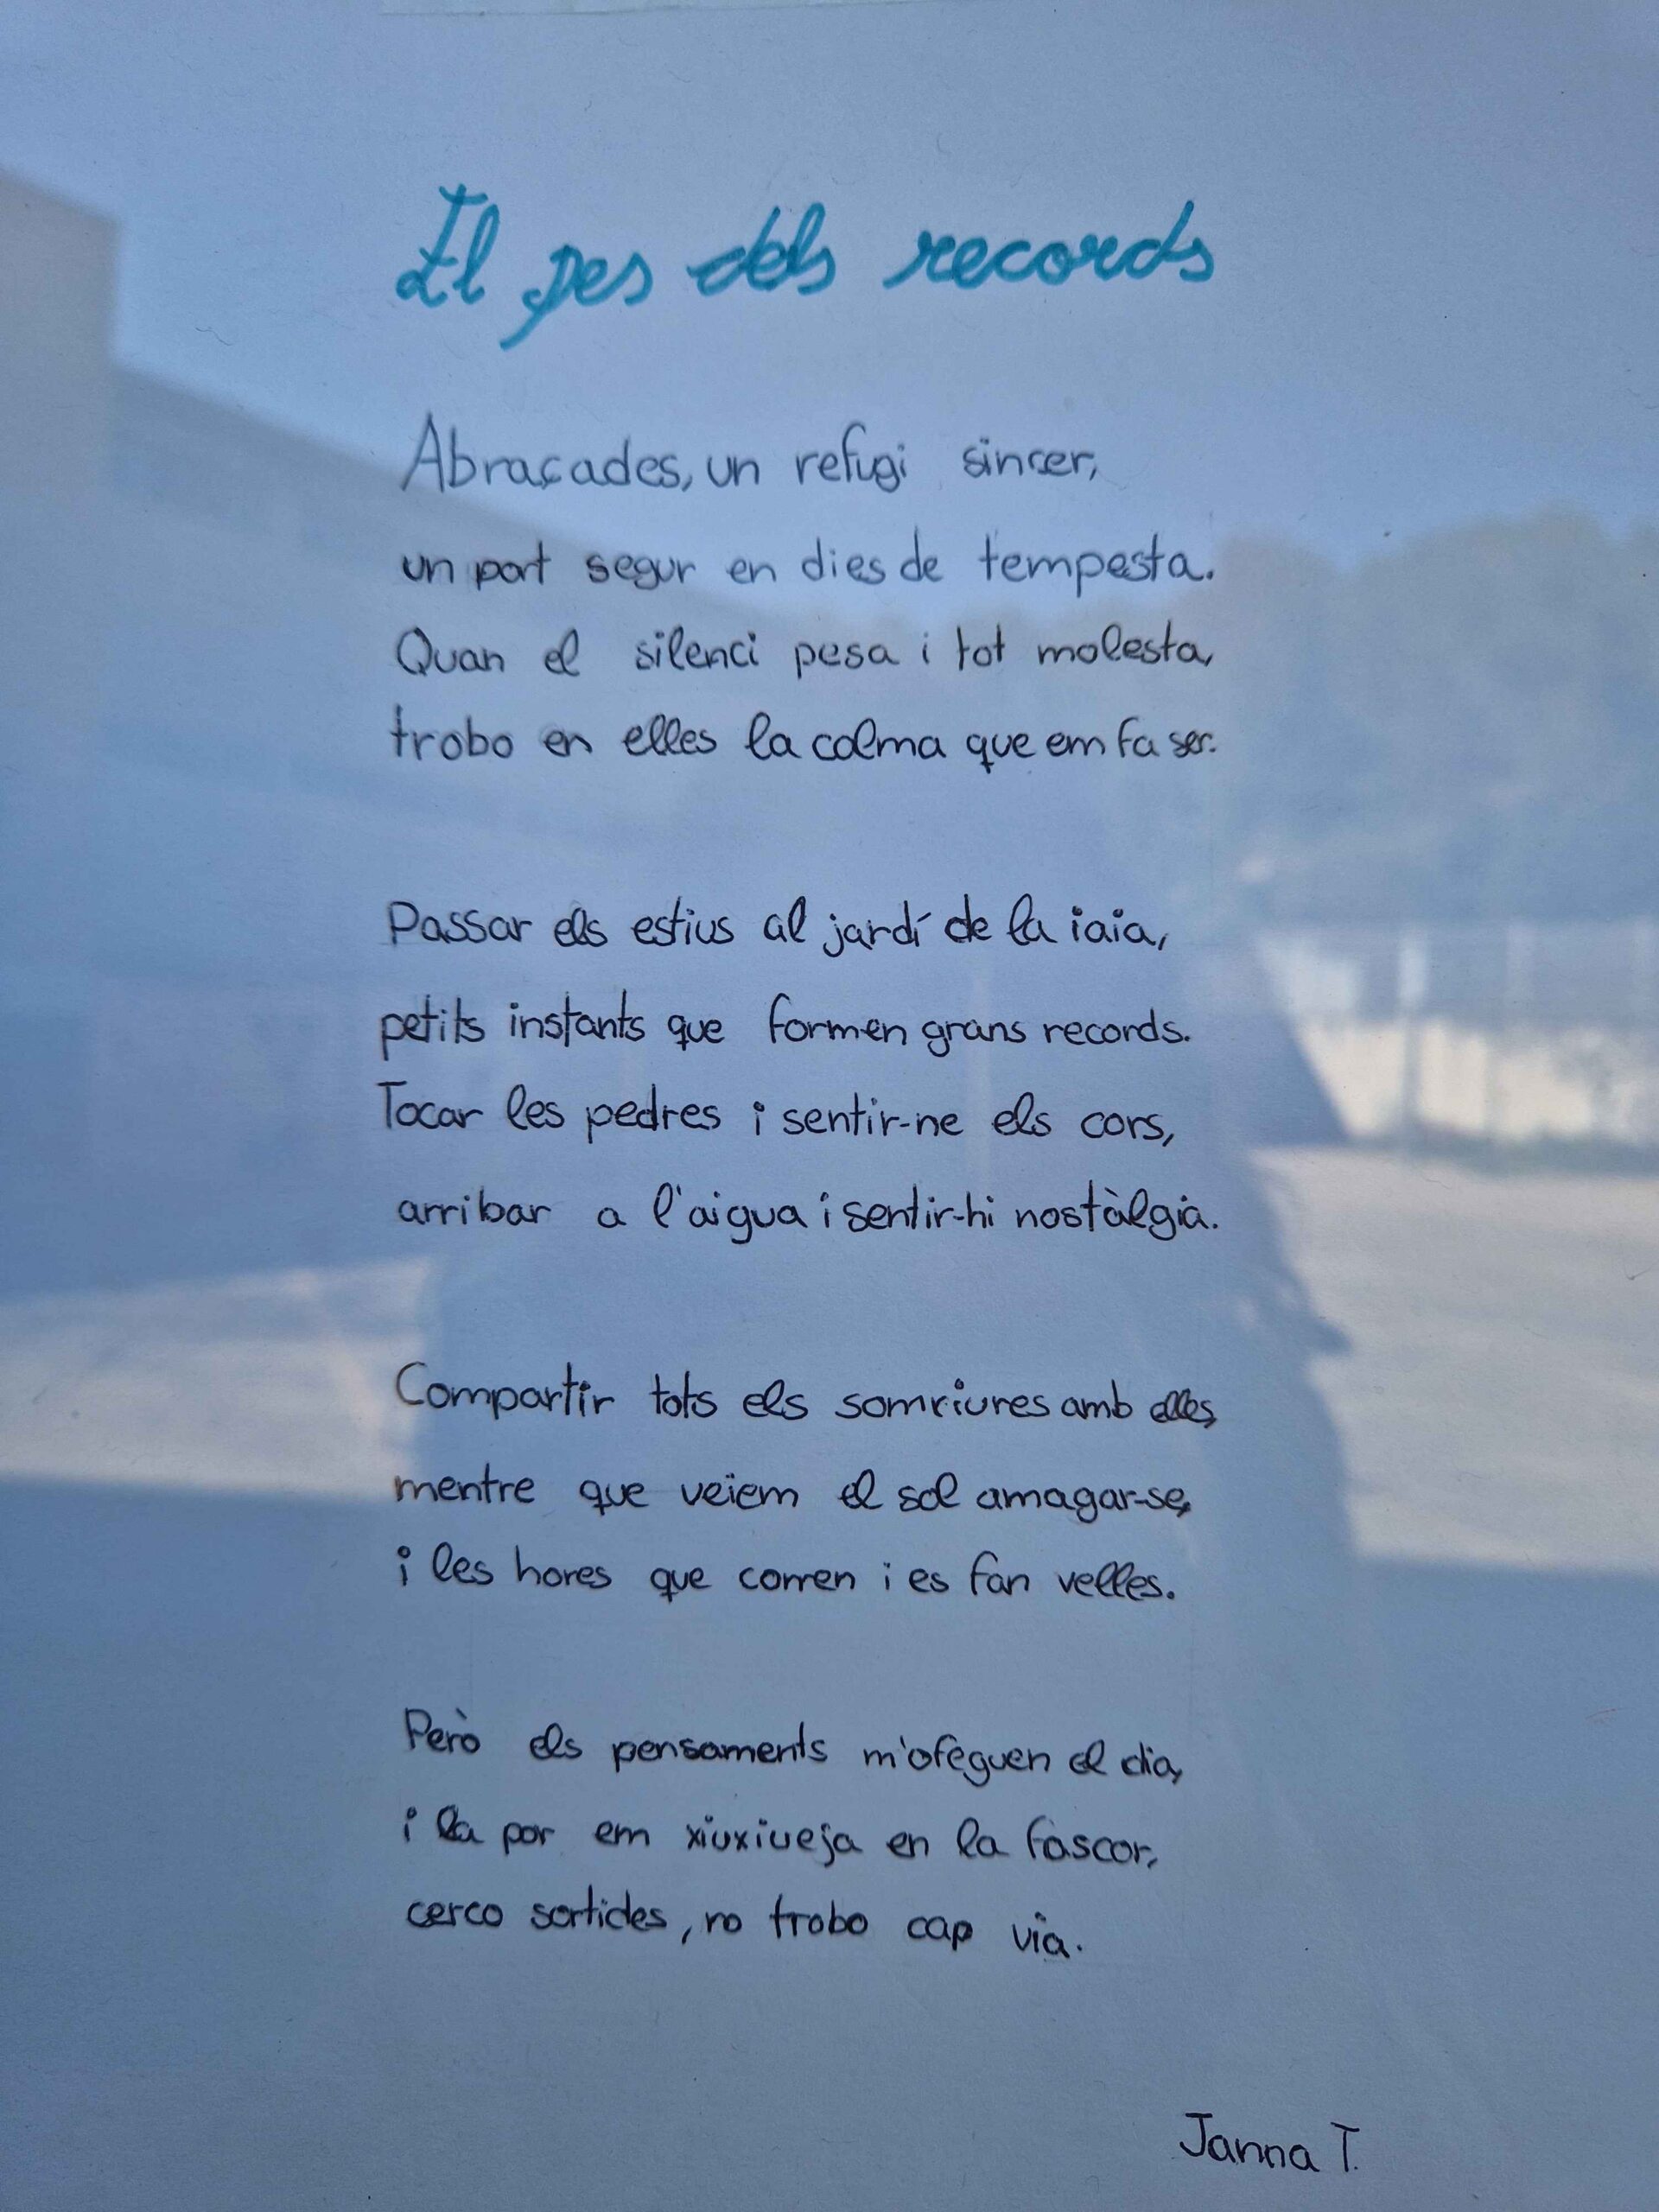 El pes dels records
Abraçades, un refugi sincer,
un port segur en dies de tempesta.
Quan el silenci pesa i tot molesta,
trobo en elles la calma que em fa ser.
Passar els estius al jardí de la iaia,
petits instants que formen grans records.
Tocar les pedres i sentir-ne els cors,
arribar a l'aigua i sentir-hi nostàlgia.
Compartir tots els somriures amb elles,
mentre que veiem el sol amagar-se,
i les hores que corren i es fan velles.
Però els pensaments m'ofeguen el dia,
i la por em xiuxiueja en la foscor,
cerco sortides, no trobo cap via.
Janna T.